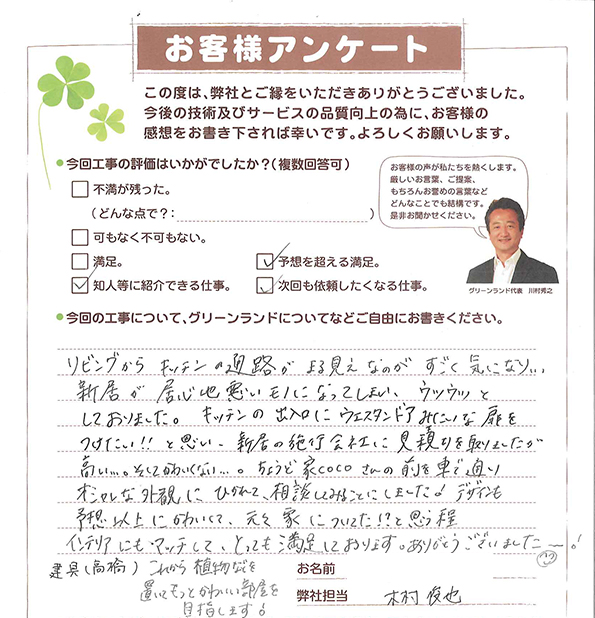 お客様アンケート
この度は、弊社とご縁をいただきありがとうございました。
今後の技術及びサービスの品質向上の為に、お客様の
感想をお書き下されば幸いです。よろしくお願いします。
●今回工事の評価はいかがでしたか？（複数回答可）
不満が残った。
（どんな点で？：　　　　）
可もなく不可もない。
満足。
予想を超える満足。
知人等に紹介できる仕事。
次回も依頼したくなる仕事。
お客様の声が私たちを熱くします。
厳しいお言葉、ご提案、
もちろんお誉めの言葉など
どんなことでも結構です。
是非お聞かせください。
グリーンランド代表　川村秀之
●今回の工事について、グリーンランドについてなどご自由にお書きください。
リビングから キッチンの通路が まる見えなのが すごく気になり...
新居が 居心地悪いモノになってしまい、ウツウツと
しておりました。キッチンの出入口にウエスタンドアみたいな扉を
つけたい!!と思い、新居の施行会社に見積りを取りましたが
高い...。そしてかわいくない...。ちょうど家cocoさんの前を車で通り
オシャレな外観に ひかれて、相談してみることにしました♪ デザインも
予想以上にかわいくて、元々家についてた!?と思う程
インテリアにもマッチして、とっても満足しております。ありがとうございましたー。!
建具(高橋)
これから植物などを
置いてもっとかわいい部屋を
目指します!
お名前
弊社担当　木村 俊也